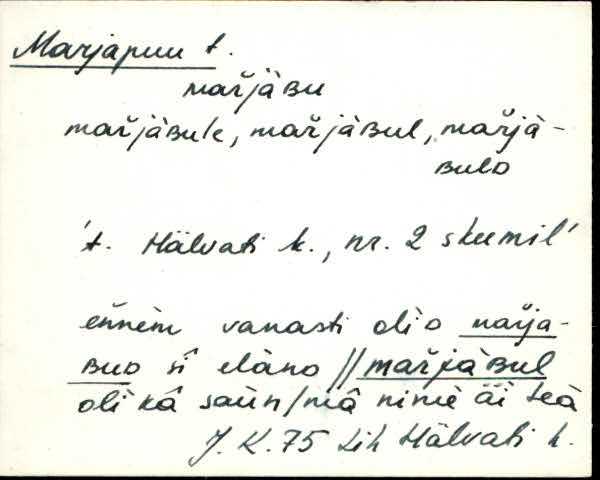 Marjapuu t.
maŕjàʙu
maŕjàʙule, maŕjàʙul, maŕjà-
ʙulo
't. Hälvati k., nr. 2 skeemil'
eǹnèm vanasti olìo naŕja-
ʙuo sî elàno // maŕjàʙul
olì kâ saùn / mâ nimè äi teà
J. K. 75 Lih Hälvati k.